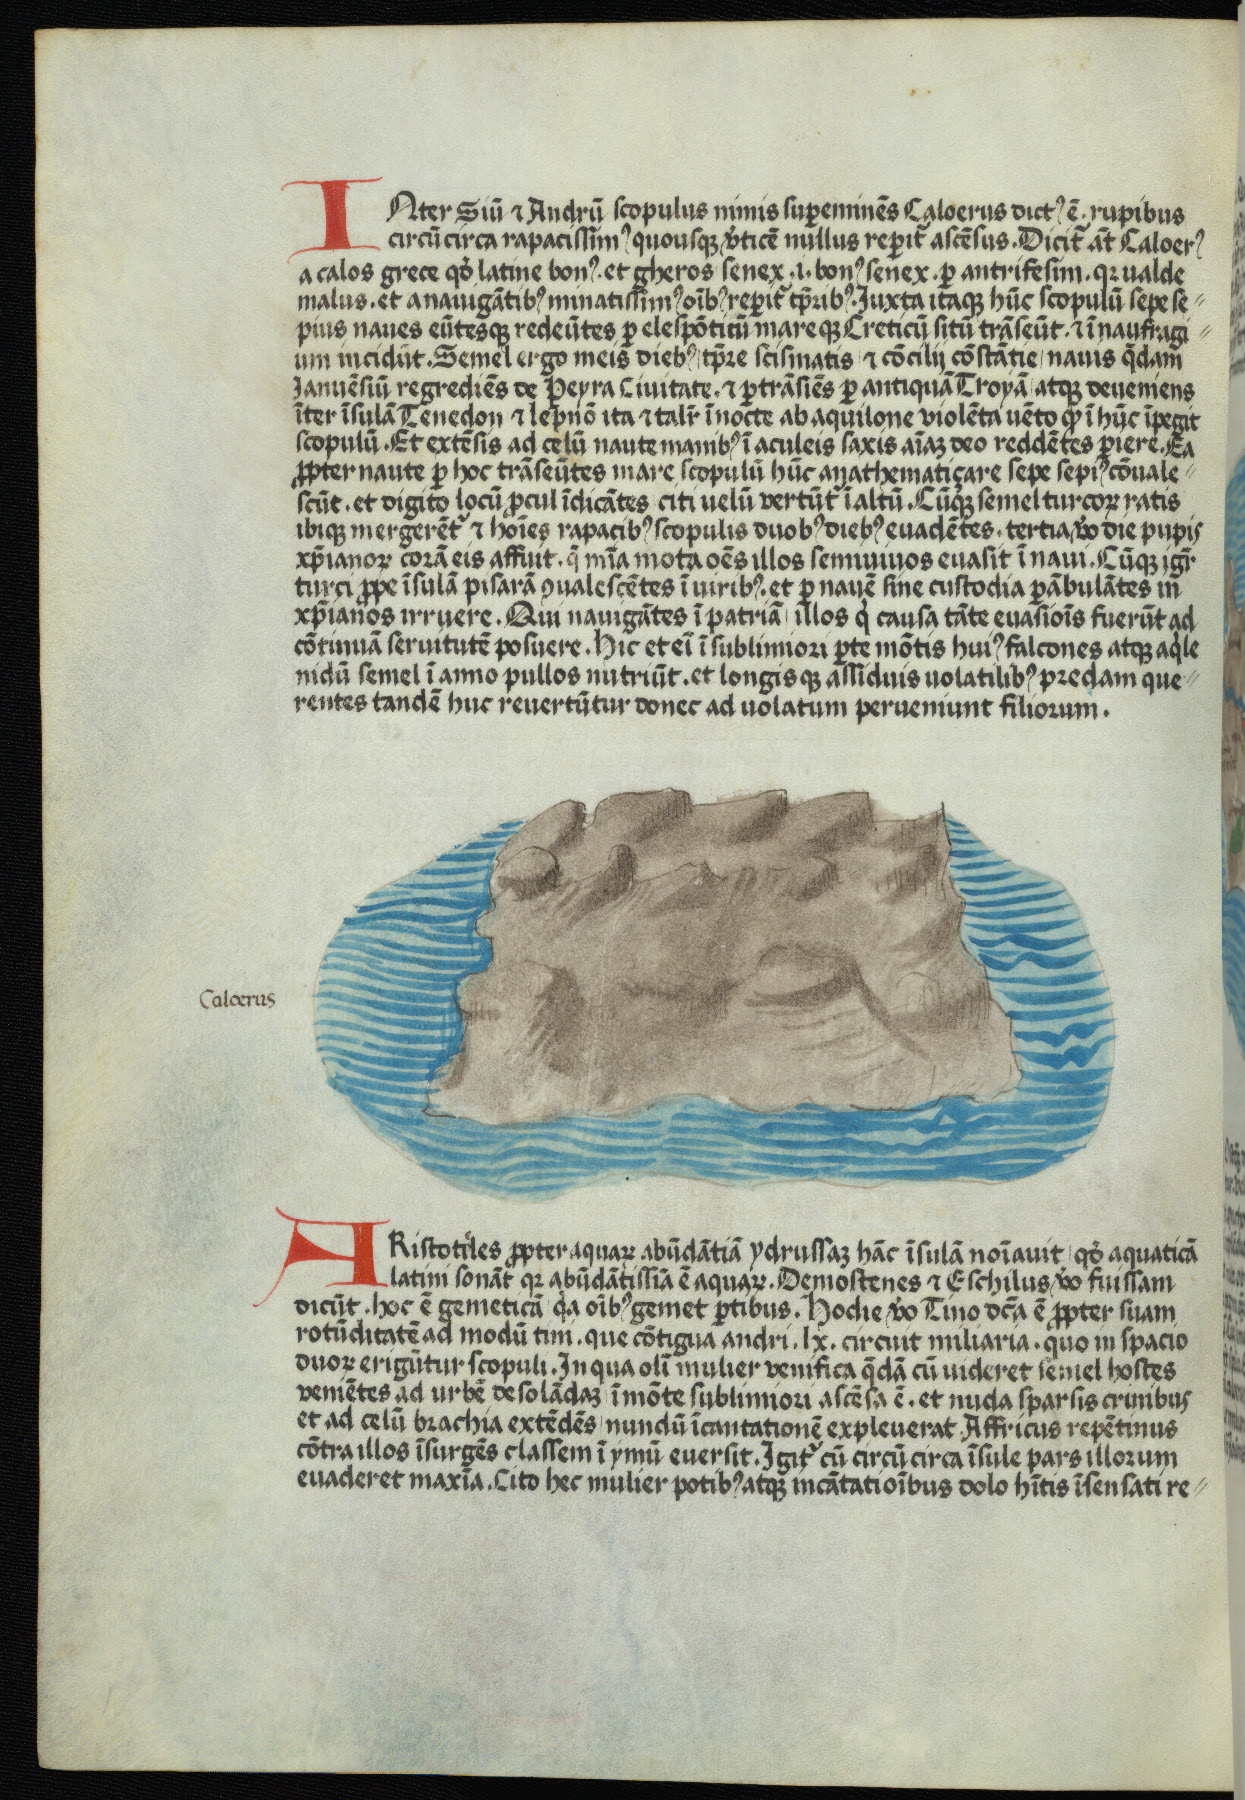 INter Siū ⁊ Andrū scopulus nimis superminēs Caloerus dictꝰ ē . rupibus
circūcirca rapacissimꝰ quousqꝫ v̓ticē nullus reperit᷑ ascēsus . Dicit᷑ āt Caloerꝰ
a calos grece qd̓ latine bonꝰ . et gheros senex .i. bonꝰ senex . ꝑ antrifesim . qꝛ ualde
malus . et a nauigātibꝰ minatissimꝰ oīibꝰ reperit᷑ tp̄ribꝰ . Juxta itaqꝫ hūc scopulū sepe se-
pius naues eūtesqꝫ redeūtes ꝑ elespōtitū mareqꝫ Creticū sitū trāseūt . ⁊ ī naufragi-
um incidūt . Semel ergo meis diebꝰ tp̄re scismatis ⁊ cōcilij cōstātie nauis q̄dam
Januēsiū regrediēs de Peyra Ciuitate . ⁊ ꝑtrāsiēs ꝑ antiquā Troyā atqꝫ deueniens
īter īsulā Tenedon ⁊ lepnō ita ⁊ talr̄ ī nocte ab aquilone violēta uēto qd̓ ī hūc īpegit
scopulū . Et extēsis ad celū naute manibꝰ ī aculeis saxis aīaꝫ deo reddētes ꝑiere . Ea
ꝓpter naute ꝑ hoc trāseūtes mare scopulū hūc anathematiçare sepe sepiꝰ cōuale-
scūt . et digito locū ꝓcul īdicātes citi uelū vertūt ī altū . Cūqꝫ semel turcoꝝ ratis
ibiqꝫ mergerēt᷑ ⁊ hoīes rapacibꝰ scopulis duobꝰ diebꝰ euadētes . tertia v̓o die pupis
xp̄ianoꝝ corā eis affuit . q̄ mīa mota oēs illos semiuiuos euasit ī naui . Cūqꝫ igr̄
turci ꝓpe īsulā pisarā ꝯualescētes ī viribꝰ . et ꝑ nauē sine custodia ꝑābulātes in
xp̄ianos irruere . Qui nauigātes ī patriā illos q̓ causa tāte euasiōis fuerūt ad
cōtinuā seruitutē posuere . Hic et eī ī sublimiori ꝑte mōtis huiꝰ falcones atqꝫ aq̓le
nidū semel ī anno pullos nutriūt . et longisqꝫ assiduis uolatilibꝰ predam que-
rentes tandē huc reuertūtur donec ad uolatum perueniunt filiorum .
Caloerus
ARistotiles ꝓpter aquaꝝ abūdātiā ydrussaꝫ hāc īsulā noīauit qd̓ aquaticā
latini sonāt qꝛ abūdātissīa ē aquaꝝ . Demostenes ⁊ Eschilus v̓o fuissam
dicūt . hoc ē gemeticā q̓a oībꝰ gemet ꝑtibus . Hodie v̓o Tino dc̄a ē ꝓpter suam
rotūditatē ad modū tini . que cōtigua andri . lx . circuit miliaria . quo in spacio
duoꝝ erigūtur scopuli . In qua olī mulier venifica q̄dā cū uideret semel hostes
veniētes ad urbē desolādaꝫ ī mōte sublimiori ascēsa ē . et nuda sparsis crinibus
et ad celū brachia extēdēs nundū īcantationē expleuerat Affricus repētinus
cōtra illos īsurgēs classem ī ymū euersit . Igit᷑ cū circūcirca īsule pars illorum
euaderet maxīa . Cito hec mulier potibꝰ atqꝫ incātatioībus dolo hītis īsensati re-